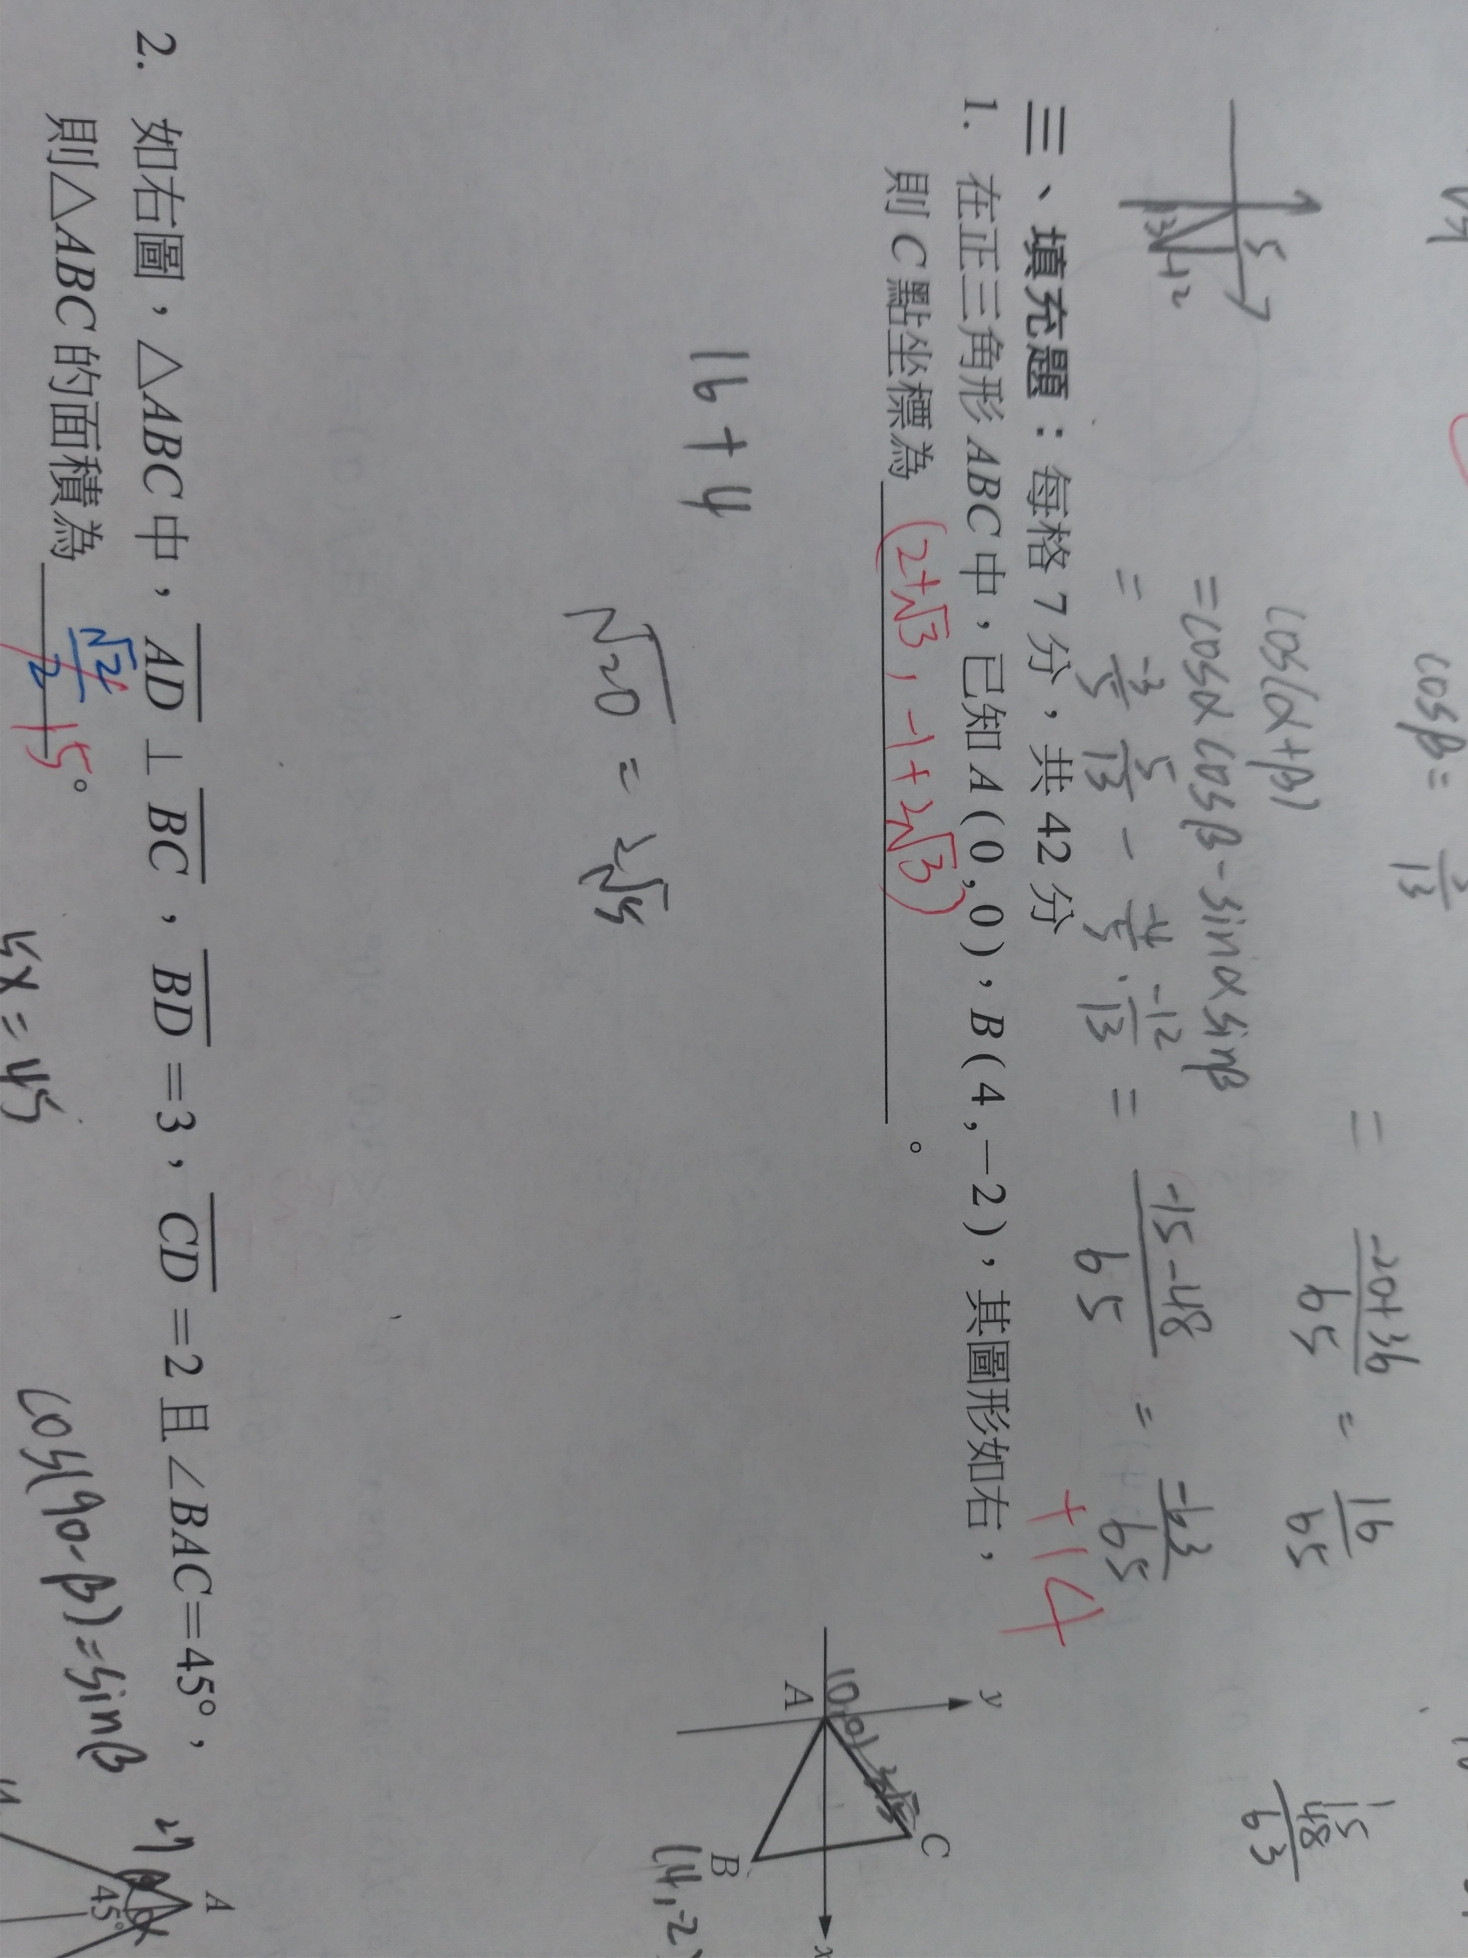 cosβ=
= -20+36/65 = 16/65
cos(α+β)
=cosαcosβ-sinαsinβ
= -3/5 5/13 - 4/5 · -12/13 = -15-48/65 = -63/65
5
13
-12
15
48
63
三、填充題：每格 7 分，共 42 分
+14
1. 在正三角形 ABC 中，已知 A(0,0)，B(4,-2)，其圖形如右，
則 C 點坐標為 (2+√3, -1+2√3) 。
y
A
(0,0)
2√5
C
B
(4,-2)
x
16+4
√20 = 2√5
2. 如右圖，△ABC 中，AD⊥BC，BD=3，CD=2 且∠BAC=45°，
則△ABC 的面積為 √2/2 15 。
5x=45
cos(90-β)=sinβ
A
45°
β
α